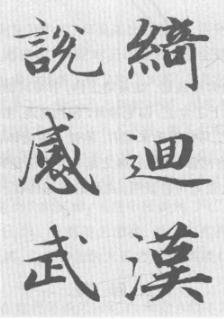 綺迴漢
說感武